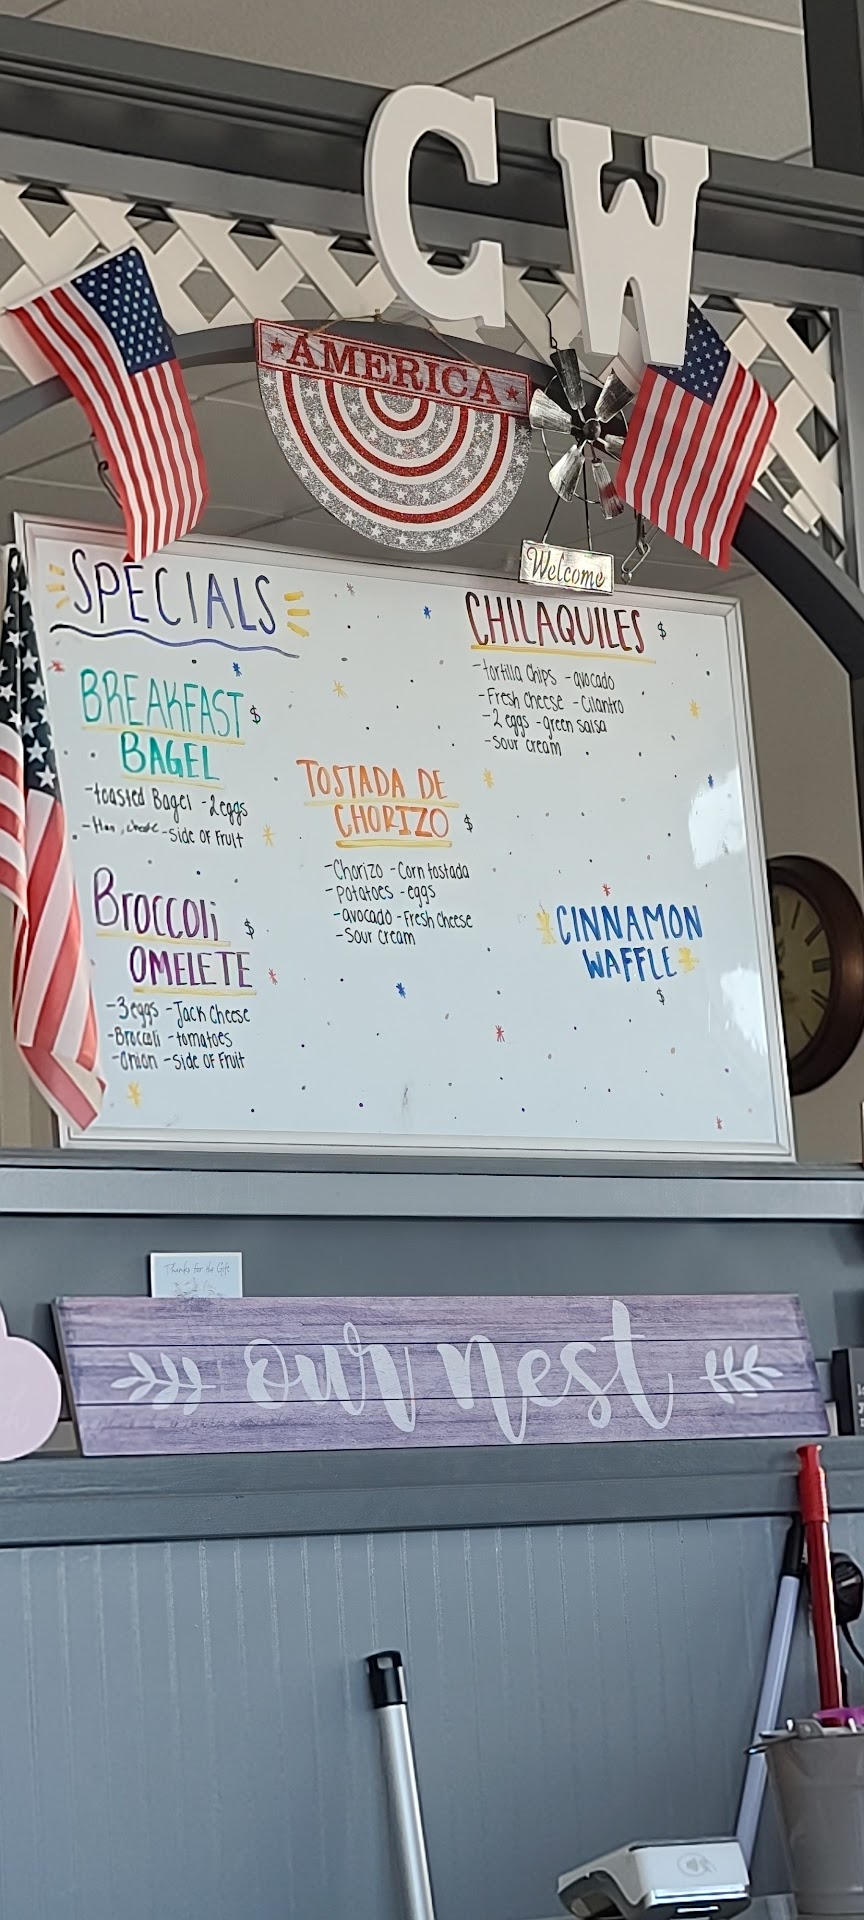 CW
AMERICA
Welcome
SPECIALS
BREAKFAST $
BAGEL
-toasted Bagel -2eggs
-Ham, cheese -side of Fruit
Broccoli $
OMELETE
-3eggs -Jack Cheese
-Broccoli -tomatoes
-onion -side of Fruit
TOSTADA DE
CHORIZO $
-Chorizo -Corn tostada
-Potatoes -eggs
-avocado -Fresh cheese
-Sour cream
CHILAQUILES $
-tortilla chips -avocado
-Fresh cheese -Cilantro
-2 eggs -green salsa
-sour cream
CINNAMON
WAFFLE
$
Thanks for the Gift
our nest